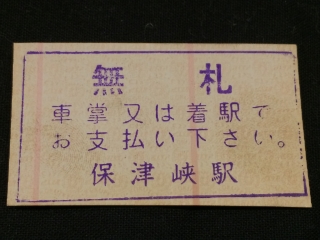 無札
車掌又は着駅で
お支払い下さい。
保津峡駅